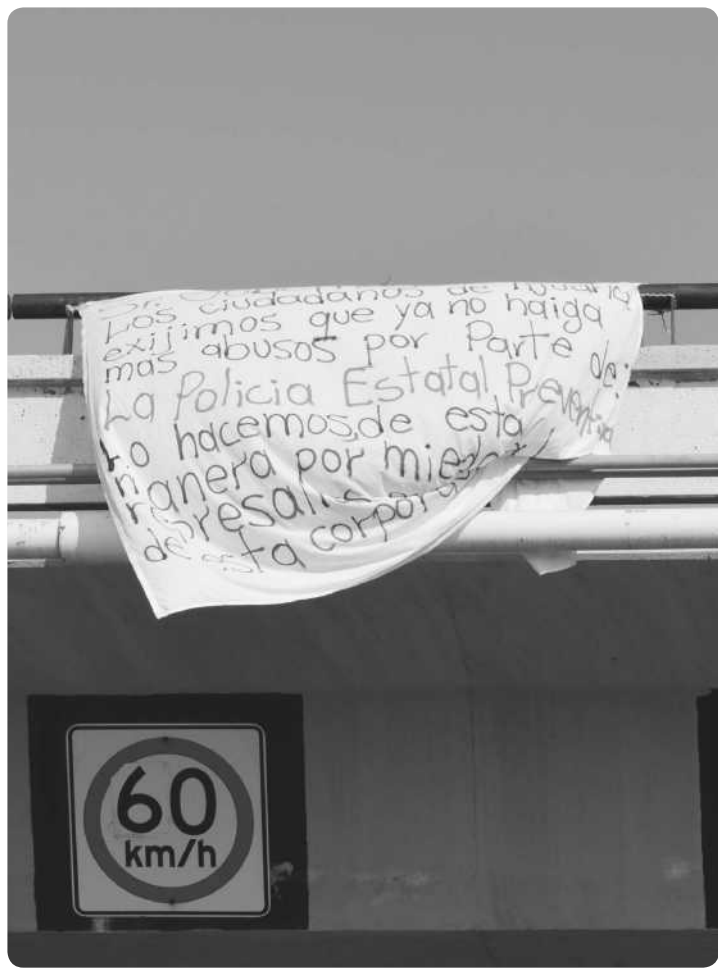 Sr.
Los ciudadanos de
exijimos que ya no haiga
mas abusos por Parte de
La Policia Estatal Preventiva
lo hacemos de esta
manera por miedo
represali
de esta corpor
60
km/h